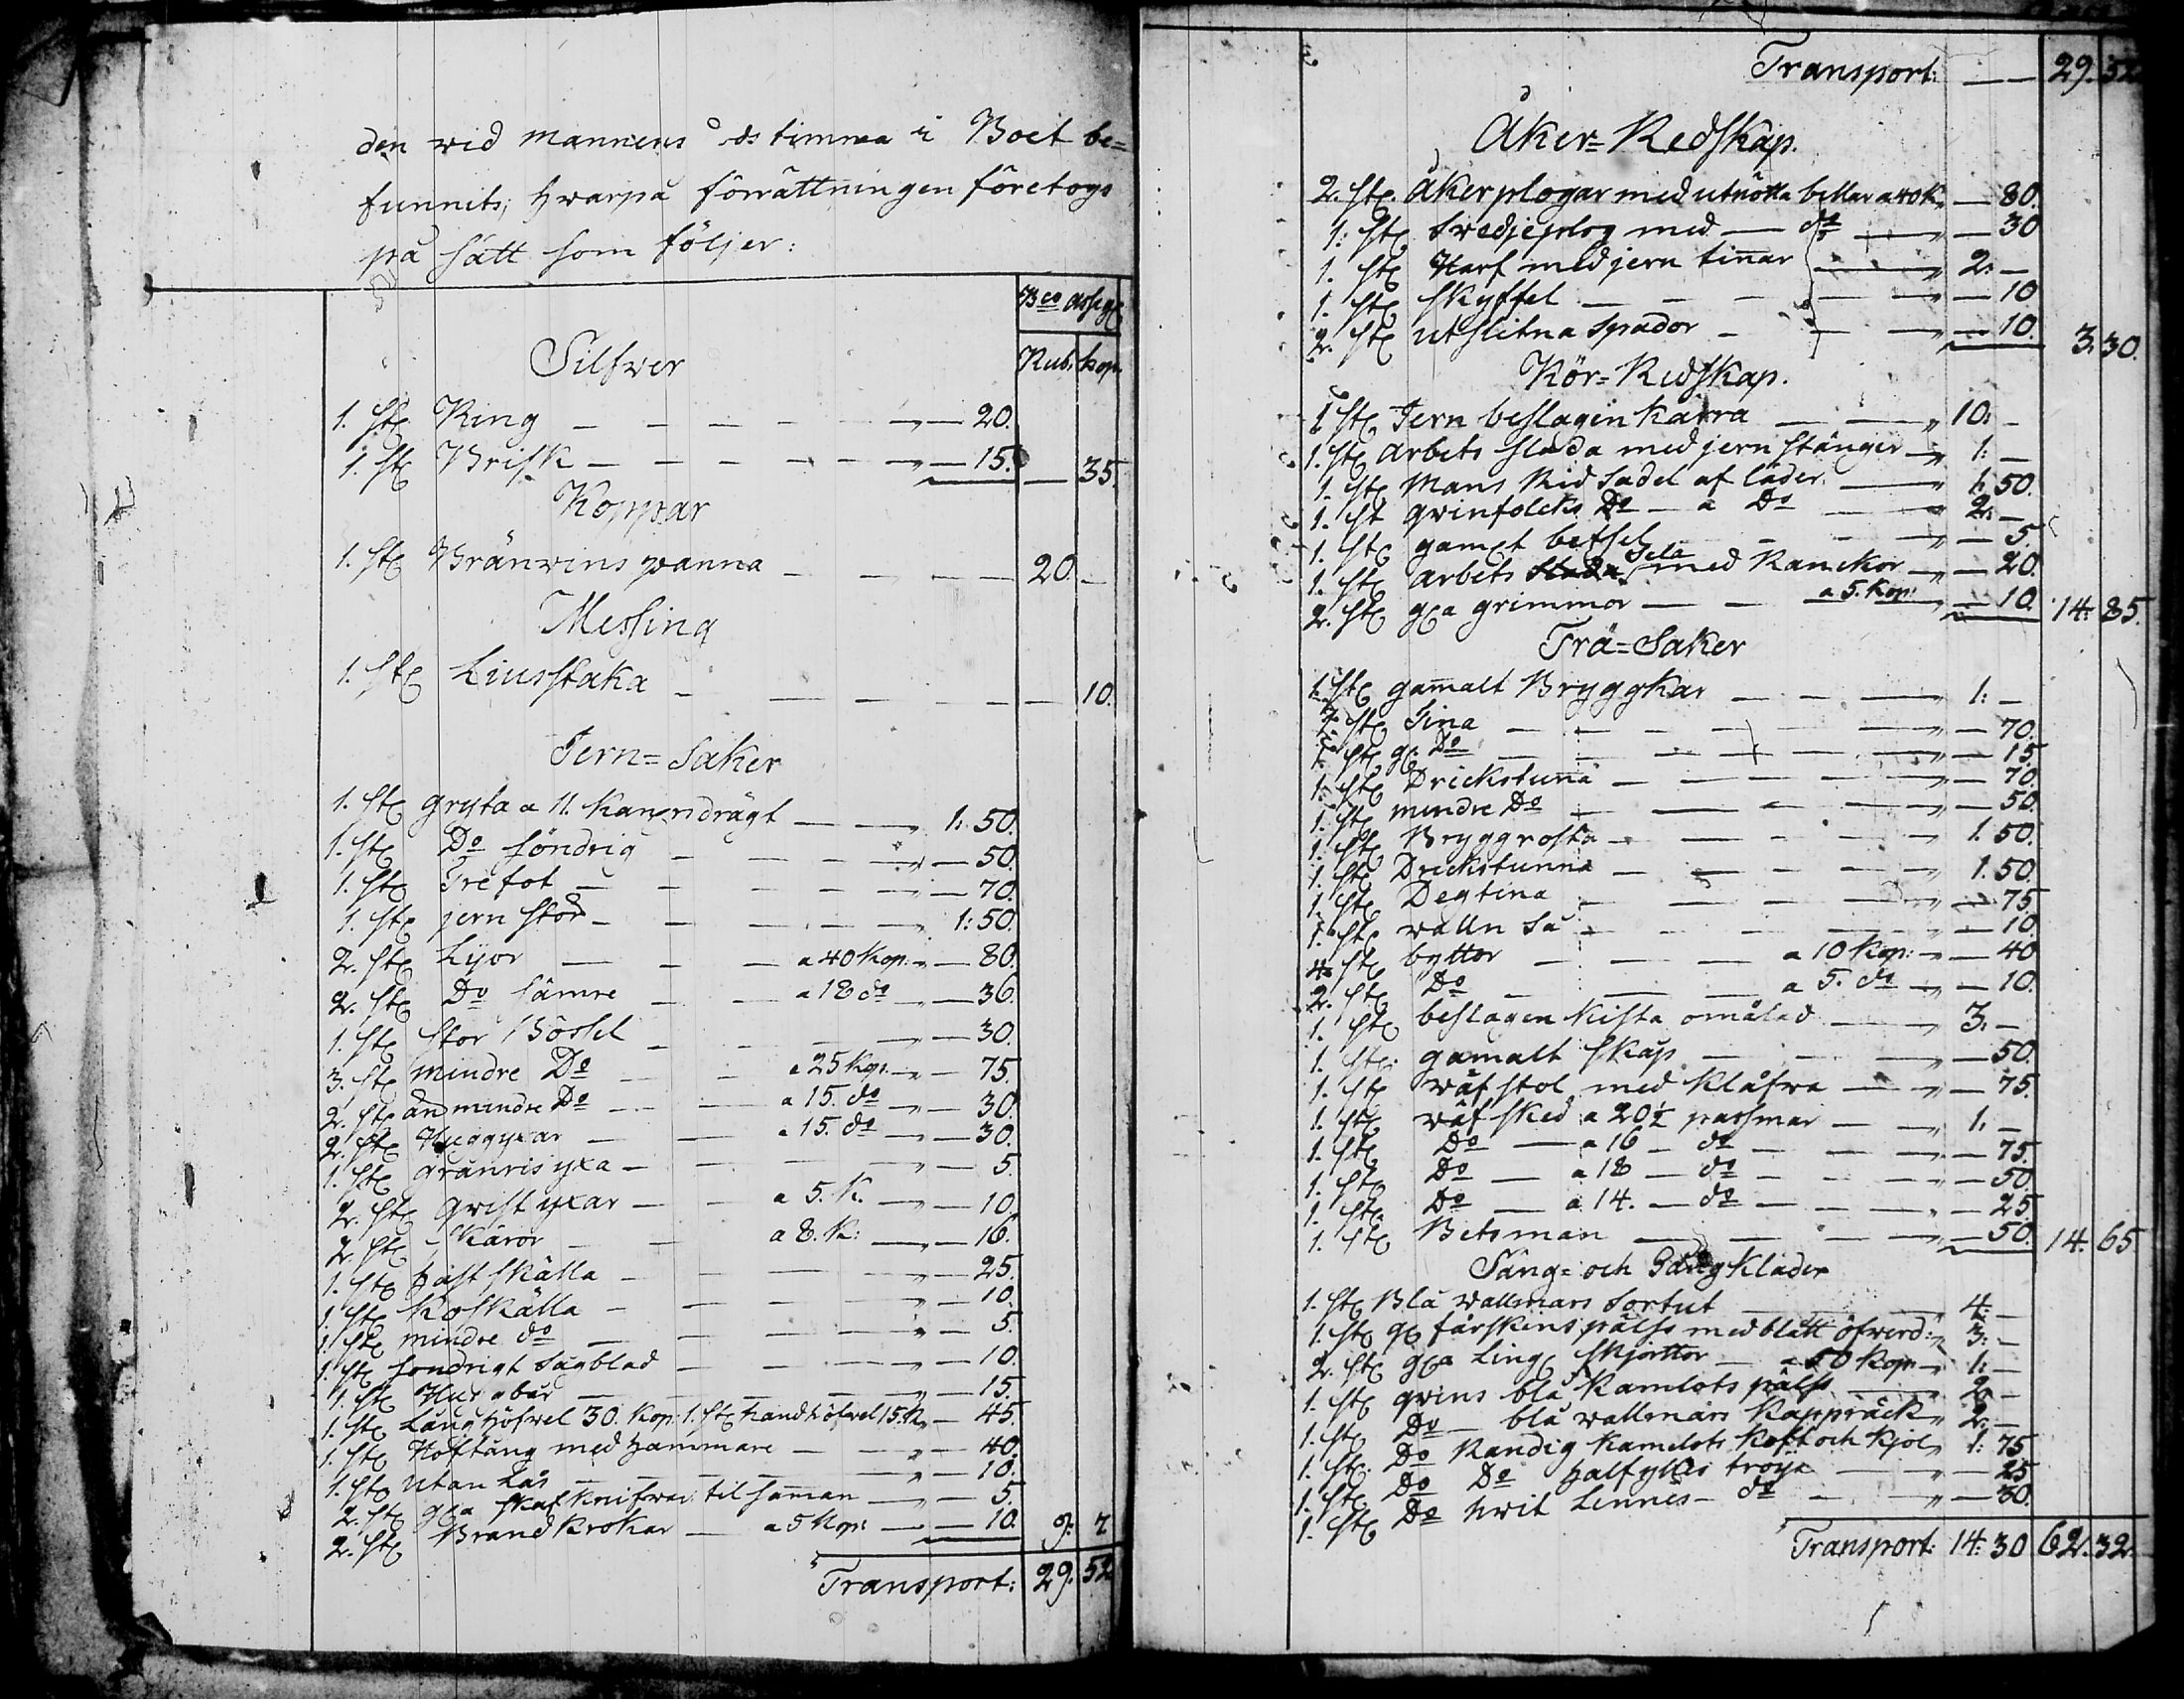 den wid mannens döds timma i Boet be=
funnits, hwarpå förrättningen företogs
på sätt som följer:
Bco Assign
Rub. kop.
Silfwer
1. st Ring — 20.
1. st Brisk — 15. — 35.
Koppar
1. st Bränwins panna — 20. —
Messing
1. st Liusstaka — 10.
Jern=Saker
1. st gryta a 11. kannors drägt — 1: 50.
1. st Do söndrig — 50.
1. st Trefot — 70.
1. st jern stör — 1: 50.
2. st Lijor — a 40 Kop. — 80.
2. st Do sämre — a 18 do — 36.
1. st stor Bössel — 30.
3. st mindre Do — a 25 kop. — 75.
2. st än mindre Do — a 15. do — 30.
2. st Huggyxar — a 15. do — 30.
1. st granris yxa — 5.
2. st qvist yxar — a 5. K. — 10.
2. st Skäror — a 8. K: — 16.
1. st häst skälla — 25.
1. st Koskälla — 10.
1. st mindre do — 5.
1. st söndrigt sågblad — 10.
1. st — 15.
1. st Lång höfwel 30. Kop. 1. st handhöfwel 15. K — 45.
1. st Hoftång med hammare — 40.
1. st utan Lås — 10.
2. st gla skaf knifwar til samman — 5.
2. st Brand krokar — a 5 Kop: — 10. 9: 7
Transport: 29. 52
Transport: — 29. 52
Åker=Redskap.
2. st. Åkerplogar med utnötta billar a 40 K — 80.
1: st Swedjeplog med — do — 30
1. st Harf med jern tinnar — 2: —
1. st skyffel — 10
2. st utslitna spador — 10. 3. 30.
Kör=Redskap.
1 st Jern beslagen kärra — 10: —
1. st Arbets släda med jern stänger — 1: —
1. st Mans Rid Sadel af läder — 1. 50.
1. st qvinfolcks Do — a Do — 2: —
1. st gamlt betsel — 5.
1. st arbets Sela med Ranckor — 20.
2. st gla grimmor — a 5. Kop: — 10. 14: 85.
Trä=Saker
1. st gamalt Bryggkar — 1: —
st Tina — 70.
1. st gl. Do — 15.
1. st Drickstuna — 70.
1. st mindre Do — 50.
1. st Bryggrosta — 1. 50.
1. st Drickstunna — 1. 50.
1. st Degtina — 75.
1. st watn så — 10.
4. st byttor — a 10 Kop: — 40
2. st Do — a 5. do — 10.
1. st beslagen kista omålad — 3. —
1. st. gamalt skåp — 50.
1. st wäfstol med Klåfwa — 75.
1. st wäf sked a 20½ passmar — 1. —
1. st Do — a 16 — do — 75.
1. st Do — a 18 — do — 50.
1. st. Do — a 14. — do — 25
1. st Betsman — 50. 14. 65
Säng= och Gångkläder
1. st Blå wallmars Sortut — 4: —
1. st gl fårskins päls med blått öfwerd: — 3: —
2. st gla Ling skjorttor — a 50 Kop — 1: —
1. st qvins blå Kamlots päls — 2. —
1. st Do — blå wallmars Kappräck — 2. —
1. st. Do Randig Kamelots koft och kjol — 1: 75
1. st Do Do halfylles tröya — 25
1. st Do hwit Lennes — do — 30.
Transport: 14: 30 62. 32.